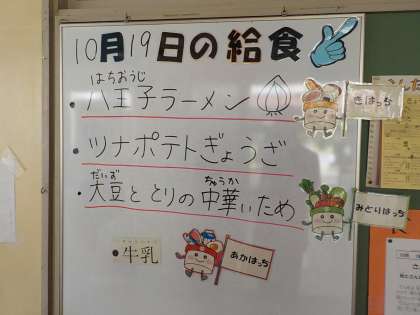 10月19日の給食
はちおうじ
・八王子ラーメン
きはっち
・ツナポテトぎょうざ
だいず ちゅうか
・大豆ととりの中華いため
みどりはっち
・牛乳
あかはっち